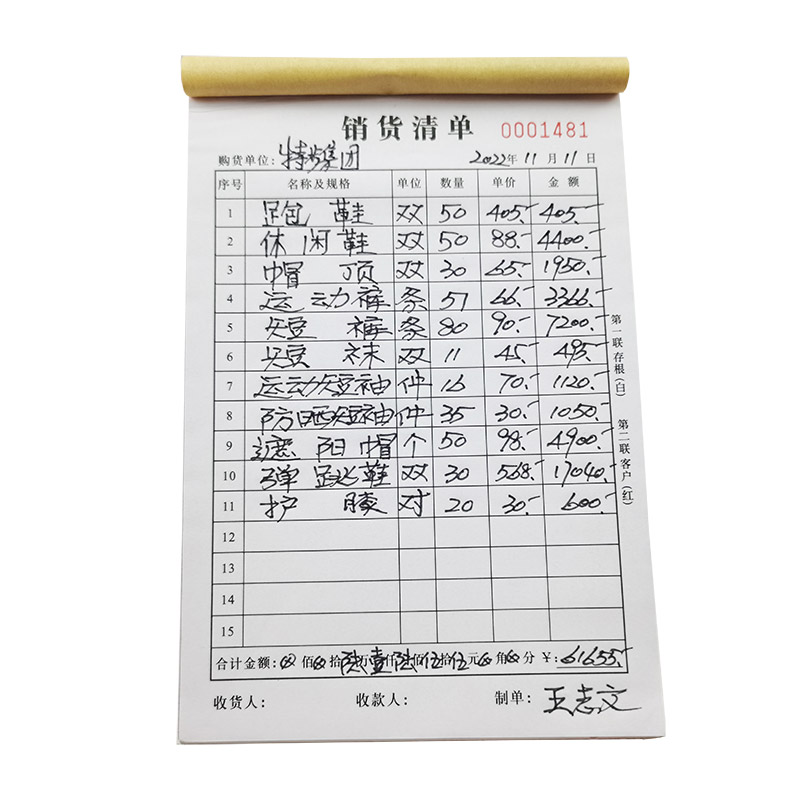 销货清单 0001481
购货单位：特步集团 2022年11月11日
序号 名称及规格 单位 数量 单价 金额
1 跑鞋 双 50 405.- 405.-
2 休闲鞋 双 50 88.- 4400.-
3 帽顶 双 30 65.- 1950.-
4 运动裤 条 51 66.- 3366.-
5 短裤 条 80 90.- 7200.-
6 短袜 双 11 45.- 495.-
7 运动短袖 件 16 70.- 1120.-
8 防晒短袖 件 35 30.- 1050.-
9 遮阳帽 个 50 98.- 4900.-
10 弹跳鞋 双 30 568.- 17040.-
11 护膝 对 20 30.- 600.-
12
13
14
15
合计金额：佰拾陆万壹仟陆佰伍拾伍元角分 ￥：61655.-
收货人： 收款人： 制单：王志文
第一联存根（白）
第二联客户（红）